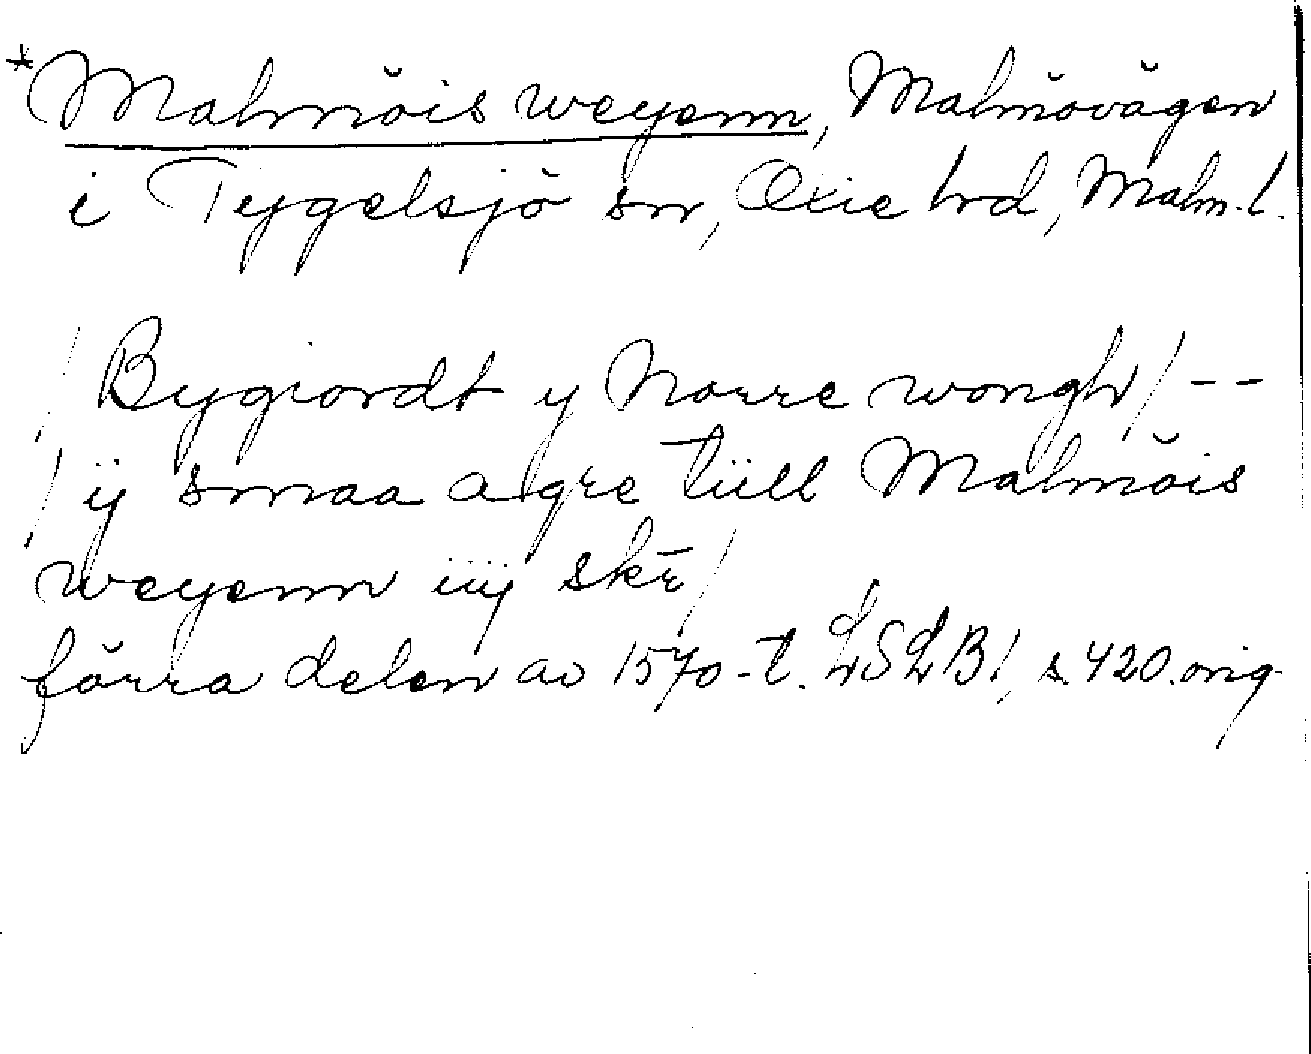 *Malmöis weyenn, Malmövägen
i Tygelsjö sn, Oxie hrd, Malm. l.
/ Bygiordt y Norre wongh / --
/ ij smaa agre tüll Malmöis
weyenn iiij skr /
förra delen av 1570-t. LSLB1, s. 420. orig.